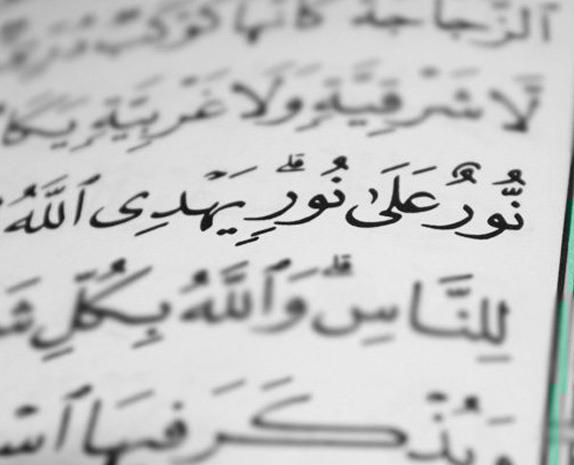 ٱلزُّجَاجَةُ كَأَنَّهَا كَوْكَبٌ دُرِّيٌّ
لَّا شَرْقِيَّةٍ وَلَا غَرْبِيَّةٍ يَكَا
نُّورٌ عَلَىٰ نُورٍ ۗ يَهْدِى ٱللَّهُ
لِلنَّاسِ ۗ وَٱللَّهُ بِكُلِّ
وَيُذْكَرَ فِيهَا ٱسْ